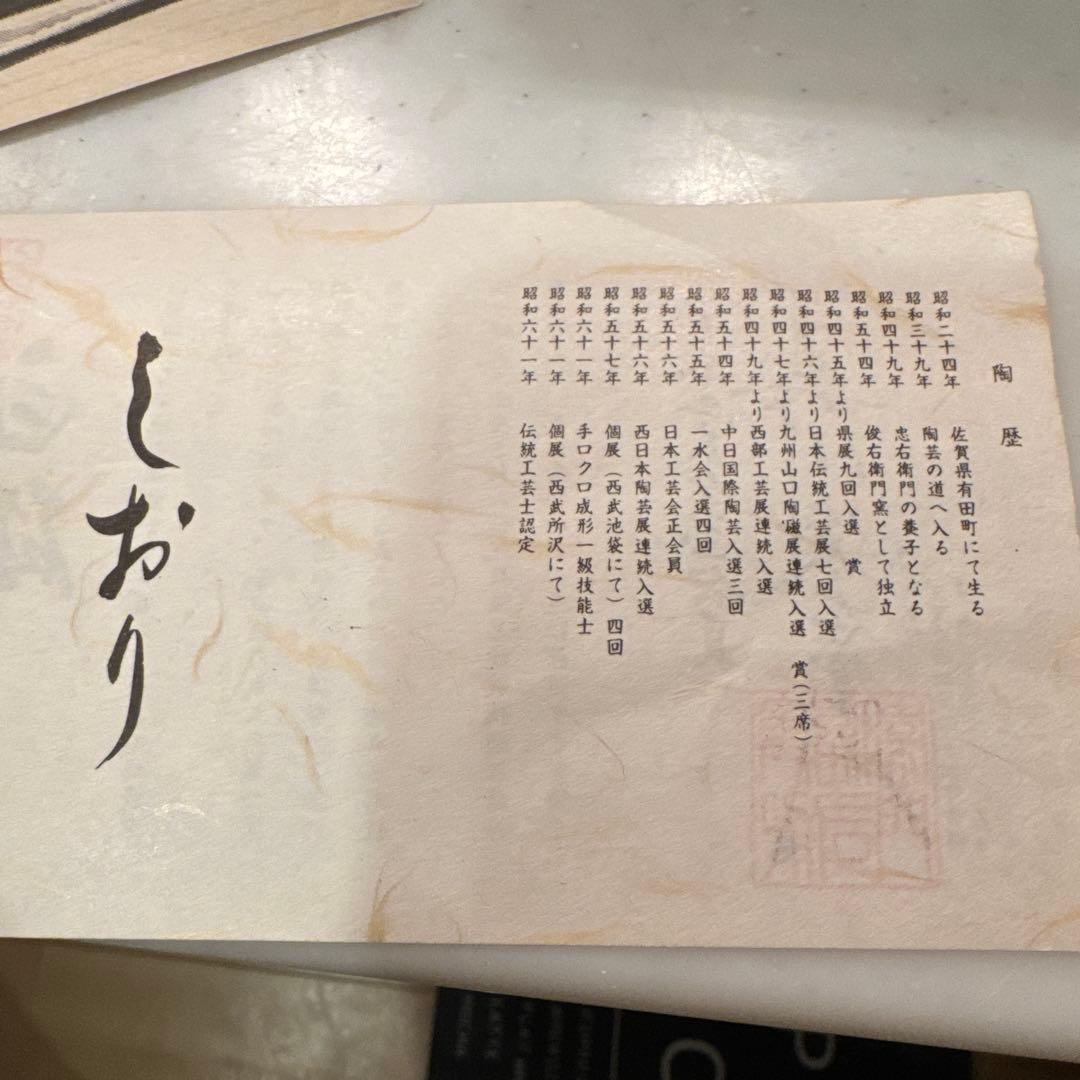 陶歴
昭和二十四年 佐賀県有田町にて生る
昭和三十九年 陶芸の道へ入る
昭和四十九年 忠右衛門の養子となる
昭和五十四年 俊右衛門窯として独立
昭和四十五年より県展九回入選 賞
昭和四十六年より日本伝統工芸展七回入選
昭和四十七年より九州山口陶磁展連続入選 賞(三席)
昭和四十九年より西部工芸展連続入選
昭和五十四年 中日国際陶芸入選三回
昭和五十五年 一水会入選四回
昭和五十六年 日本工芸会正会員
昭和五十六年 西日本陶芸展連続入選
昭和五十七年 個展(西武池袋にて)四回
昭和六十一年 手ロクロ成形一級技能士
昭和六十一年 個展(西武所沢にて)
昭和六十一年 伝統工芸士認定
しおり